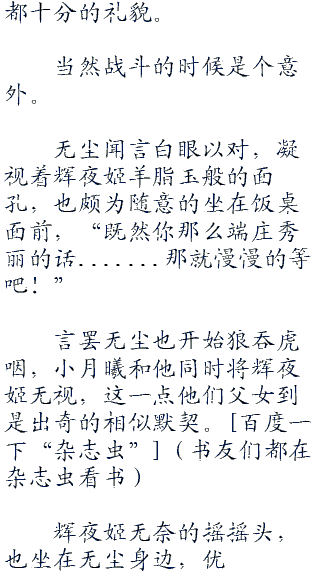 都十分的礼貌。
当然战斗的时候是个意
外。
无尘闻言白眼以对，凝
视着辉夜姬羊脂玉般的面
孔，也颇为随意的坐在饭桌
面前，“既然你那么端庄秀
丽的话.......那就慢慢的等
吧！”
言罢无尘也开始狼吞虎
咽，小月曦和他同时将辉夜
姬无视，这一点他们父女到
是出奇的相似默契。[百度一
下“杂志虫”]（书友们都在
杂志虫看书）
辉夜姬无奈的摇摇头，
也坐在无尘身边，优